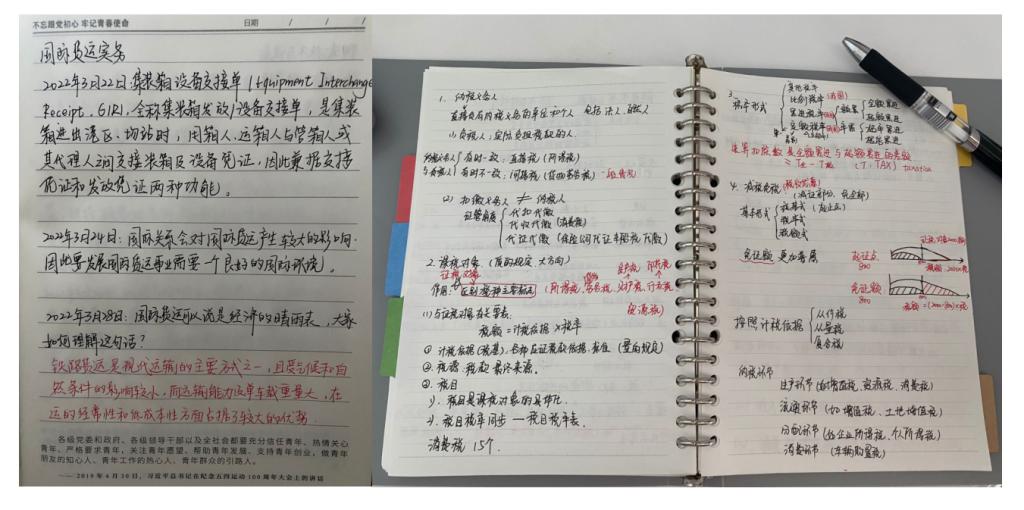 不忘跟党初心 牢记青春使命
日期 / / /
国际货运实务
2022年3月22日:集装箱设备交接单(Equipment Interchange
Receipt. EIR),全称集装箱发放/设备交接单,是集装
箱进出港区、场站时,用箱人、运箱人与管箱人或
其代理人之间交接集装箱及设备凭证,因此兼据交接
凭证和发放凭证两种功能)。
2022年3月24日:国际关系会对国际货运产生较大的影响,
因此要发展国际货运事业需要一个良好的国际环境)。
2022年3月28日:国际货运可以说是经济的晴雨表,大家
如何理解这句话?
铁路货运是现代运输的主要方式之一,且受气候和自
然条件的影响较小,而运输能力及单车载重量大,在
运的经常性和低成本性方面占据了较大的优势.
各级党委和政府、各级领导干部以及全社会都要充分信任青年、热情关心
青年、严格要求青年,关注青年愿望、帮助青年发展、支持青年创业,做青年
朋友的知心人、青年工作的热心人、青年群众的引路人。
——2019年4月30日,习近平总书记在纪念五四运动100周年大会上的讲话
1. 纳税义务人
直接负有纳税义务的单位和个人 包括法人、自然人
(1)负税人:实际负担税款的人.
纳税义务人 有时一致:直接税(所得税)
与负税人 有时不一致:间接税(货物劳务税)
(2) 扣缴义务人 ≠ 纳税人
代扣代缴
代收代缴(消费税)
代征代缴(保险公司代车船税代缴)
2. 课税对象.(质的规定、大方向)
征税对象
作用:区别税种主要标志(所得税、
资源税)
(1)与征税对象有关要素:
税额=计税依据×税率
① 计税依据(税基)
②. 税源:税款最终来源。
③. 税目
1). 税目是课税对象的具体化.
2). 税目税率同步 — 税目税率表.
消费税 15个.
3.
税率形式
比例税率
累进税率
定额税率
全额累进
超额累进
超率累进
4. 减税免税(税收优惠)
基本形式
税基式(起征点)
税率式
税额式
免征额 更加普惠
起征点
800
免征额
800
按照计税依据
从价税
从量税
复合税
纳税环节
生产环节(如增值税、资源税、消费税)
流通环节(如增值税、土地增值税)
分配环节(如企业所得税、个人所得税)
消费环节(车辆购置税)